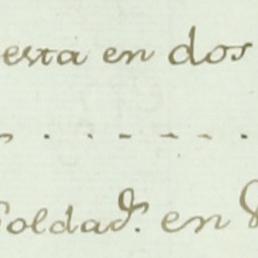 esta en dos
- . - - - - .
Soldad.ˢ en